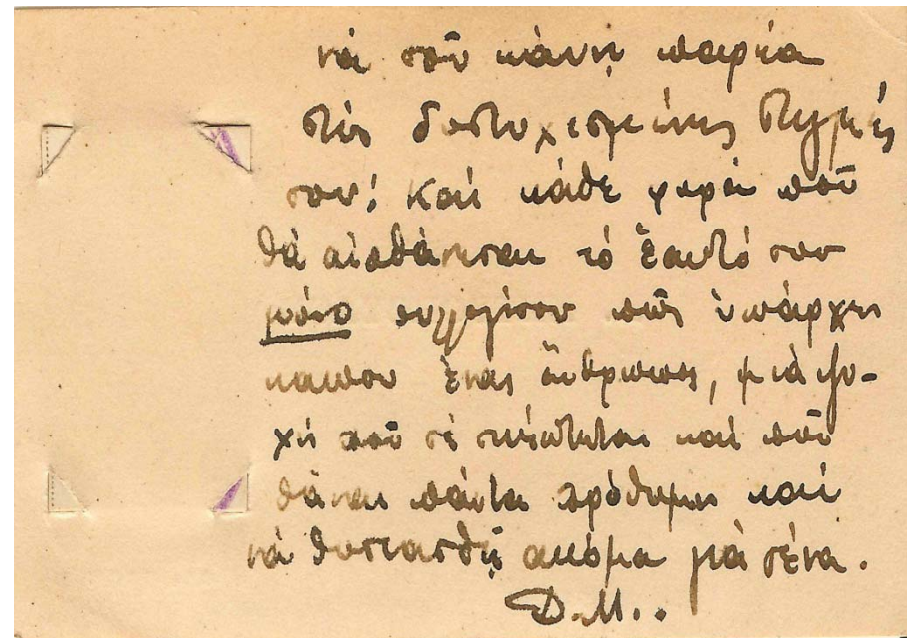 νά σοῦ κάνῃ παρέα
στίς δυστυχισμένες στιγμές
σου! Καί κάθε φορά ποῦ
θά αἰσθάνεσαι τό ἑαυτό σου
μόνο συλλογίσου πῶς ὑπάρχει
κάπου ἕνας ἄνθρωπος, μιά ψυ-
χή ποῦ σέ σκέπτεται καί ποῦ
θἆναι πάντα πρόθυμη καί
νά θυσιασθῇ ακόμα γιά σένα.
Δ.Μ..